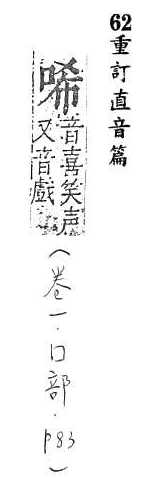 62重訂直音篇
唏音喜笑声
又音戲
(卷一·口部·P83)